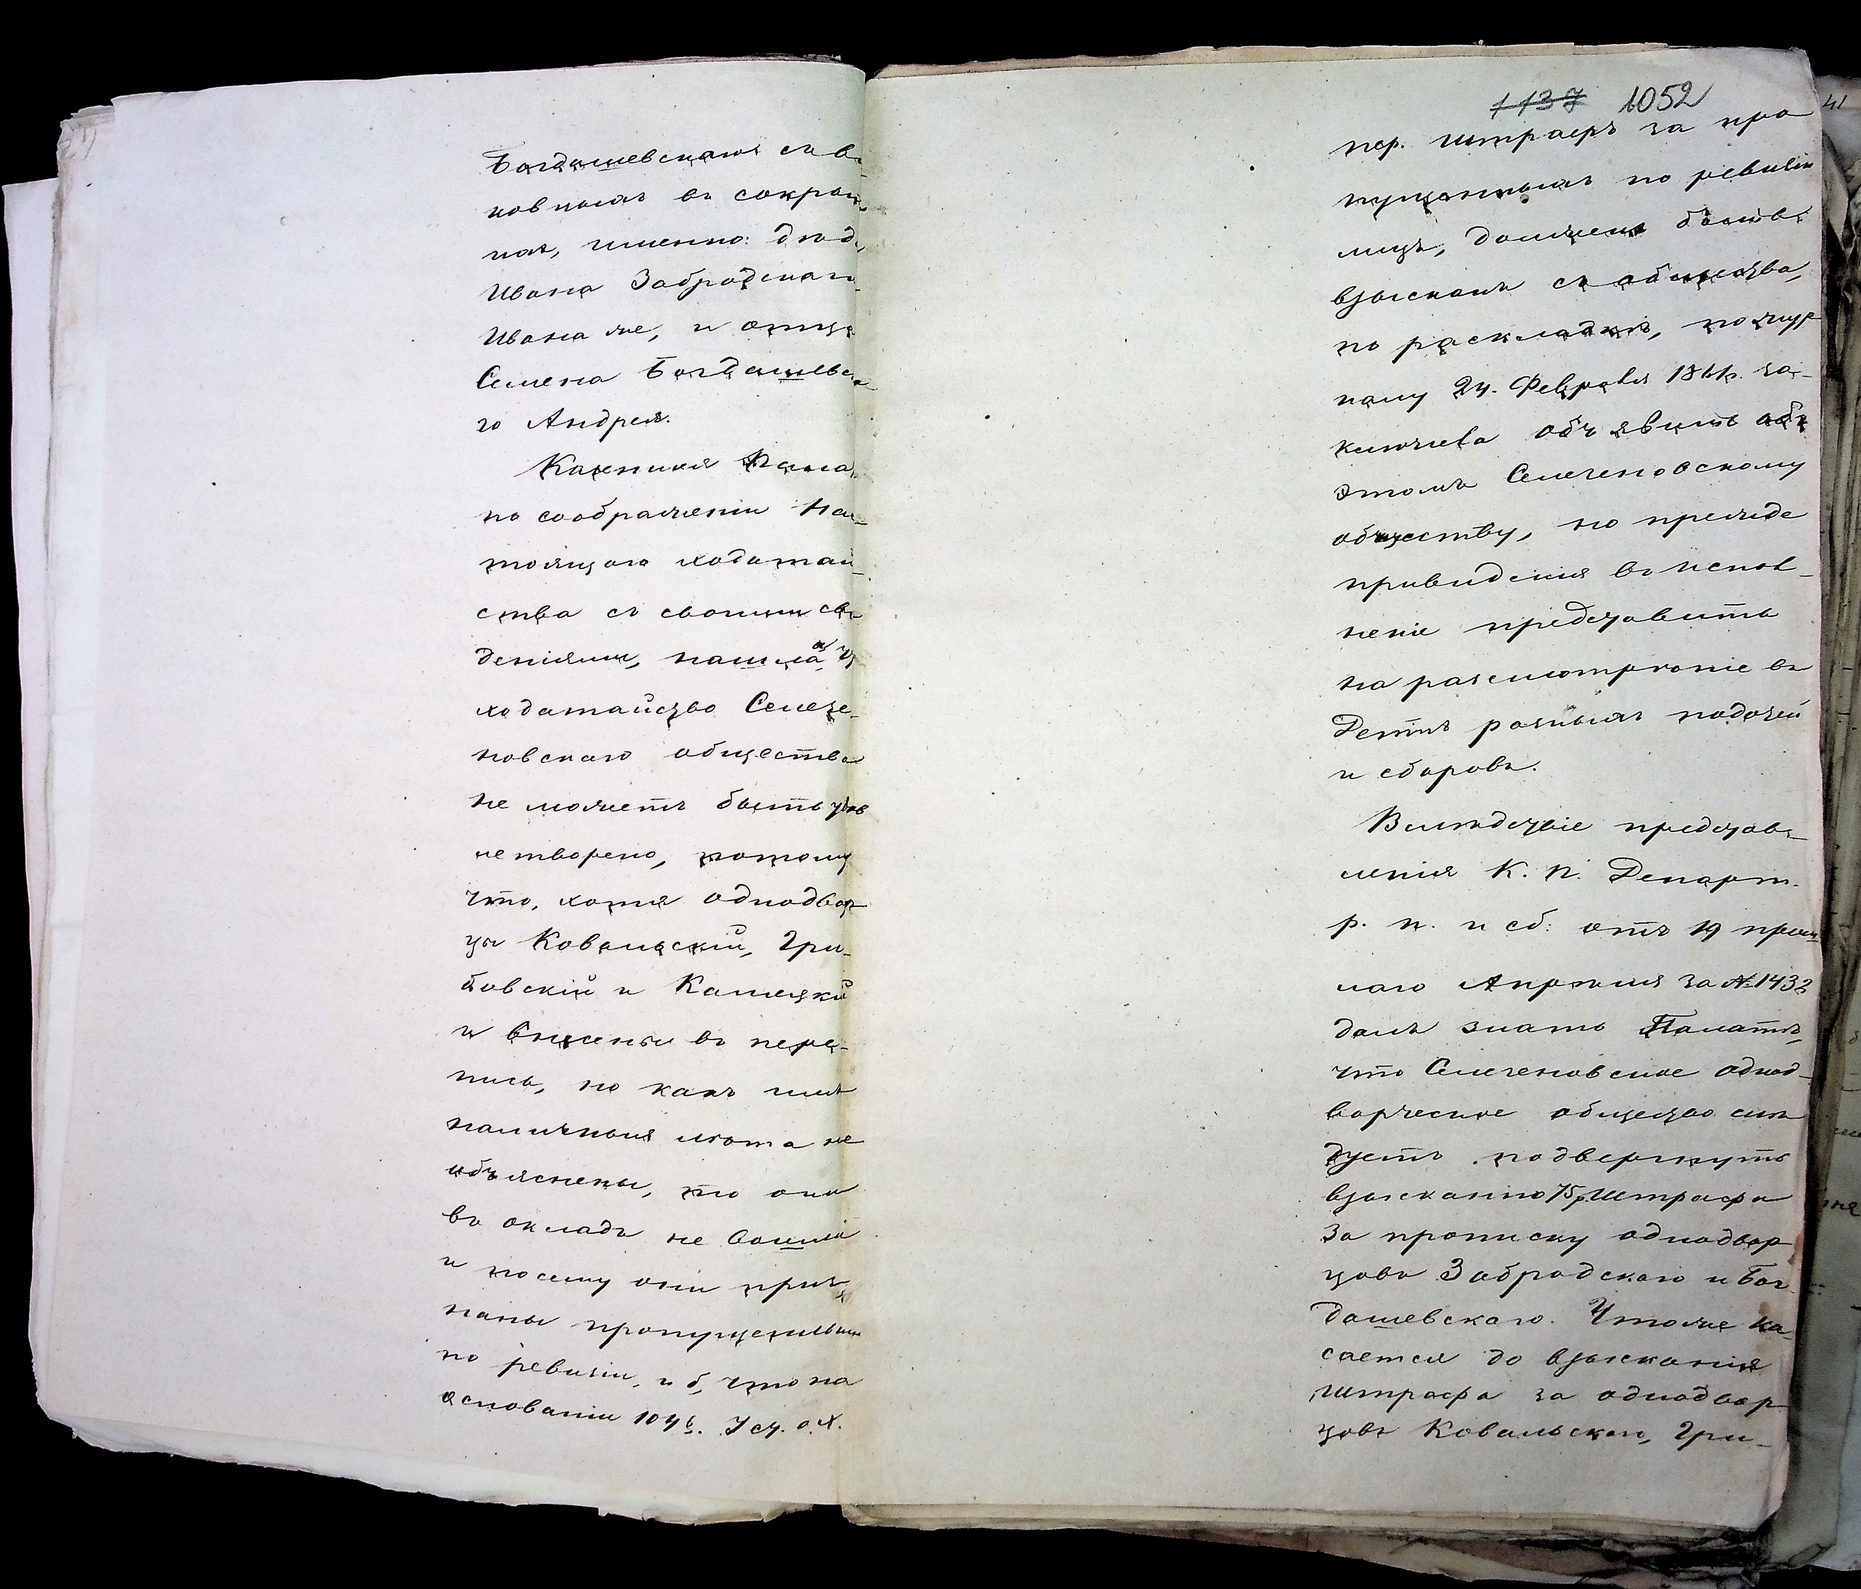 Богдашевскаго съ в
ковными въ сокра
ная, именно: дѣд
Ивана Забродскаго
Ивана же, и отца
Семена Богдашевск
го Андрея.
Казенная Палата
по соображеніи нас-
тоящаго ходатай-
ства съ своими свѣ
деніями, нашла, ч
ходатайство Селезе-
новскаго общества
не можетъ быть удов
летворено, потому
что, хотя однодвор
цы Ковальскій, Гри-
бовскій и Калецкій
и внесены въ пере-
пись, но какъ имъ
наличныя лѣта не
объяснены, то они
въ окладъ не вошли
и посему они приз
наны пропущенными
по ревизіи, и б, что на
основаніи 1046. Уст. о.Х.
1137 1052
пер. штрафъ за про
пущенныхъ по ревизіи
лицъ, долженъ быть
взысканъ съ общества,
по раскладкѣ, по жур
налу 24. Февраля 1861г. за-
ключила объявить объ
этомъ Селезеновскому
обществу, но прежде
приведенія въ испол-
неніе представить
на разсмотрѣніе въ
Деттъ разныхъ податей
и сборовъ.
Вслѣдствіе представ-
ленія К. П. Департ.
р. п. и сб: отъ 19 прош
лаго Апрѣля за № 1432
далъ знать Палатѣ,
что Селезеновское однод-
ворческое общество слѣ
дуетъ подвергнуть
взысканію 75р штрафа
за прописку однодвор
цовъ Забродскаго и Бог
дашевскаго. Что же ка-
сается до взысканія
штрафа за однодвор
цовъ Ковальскаго, Гри-